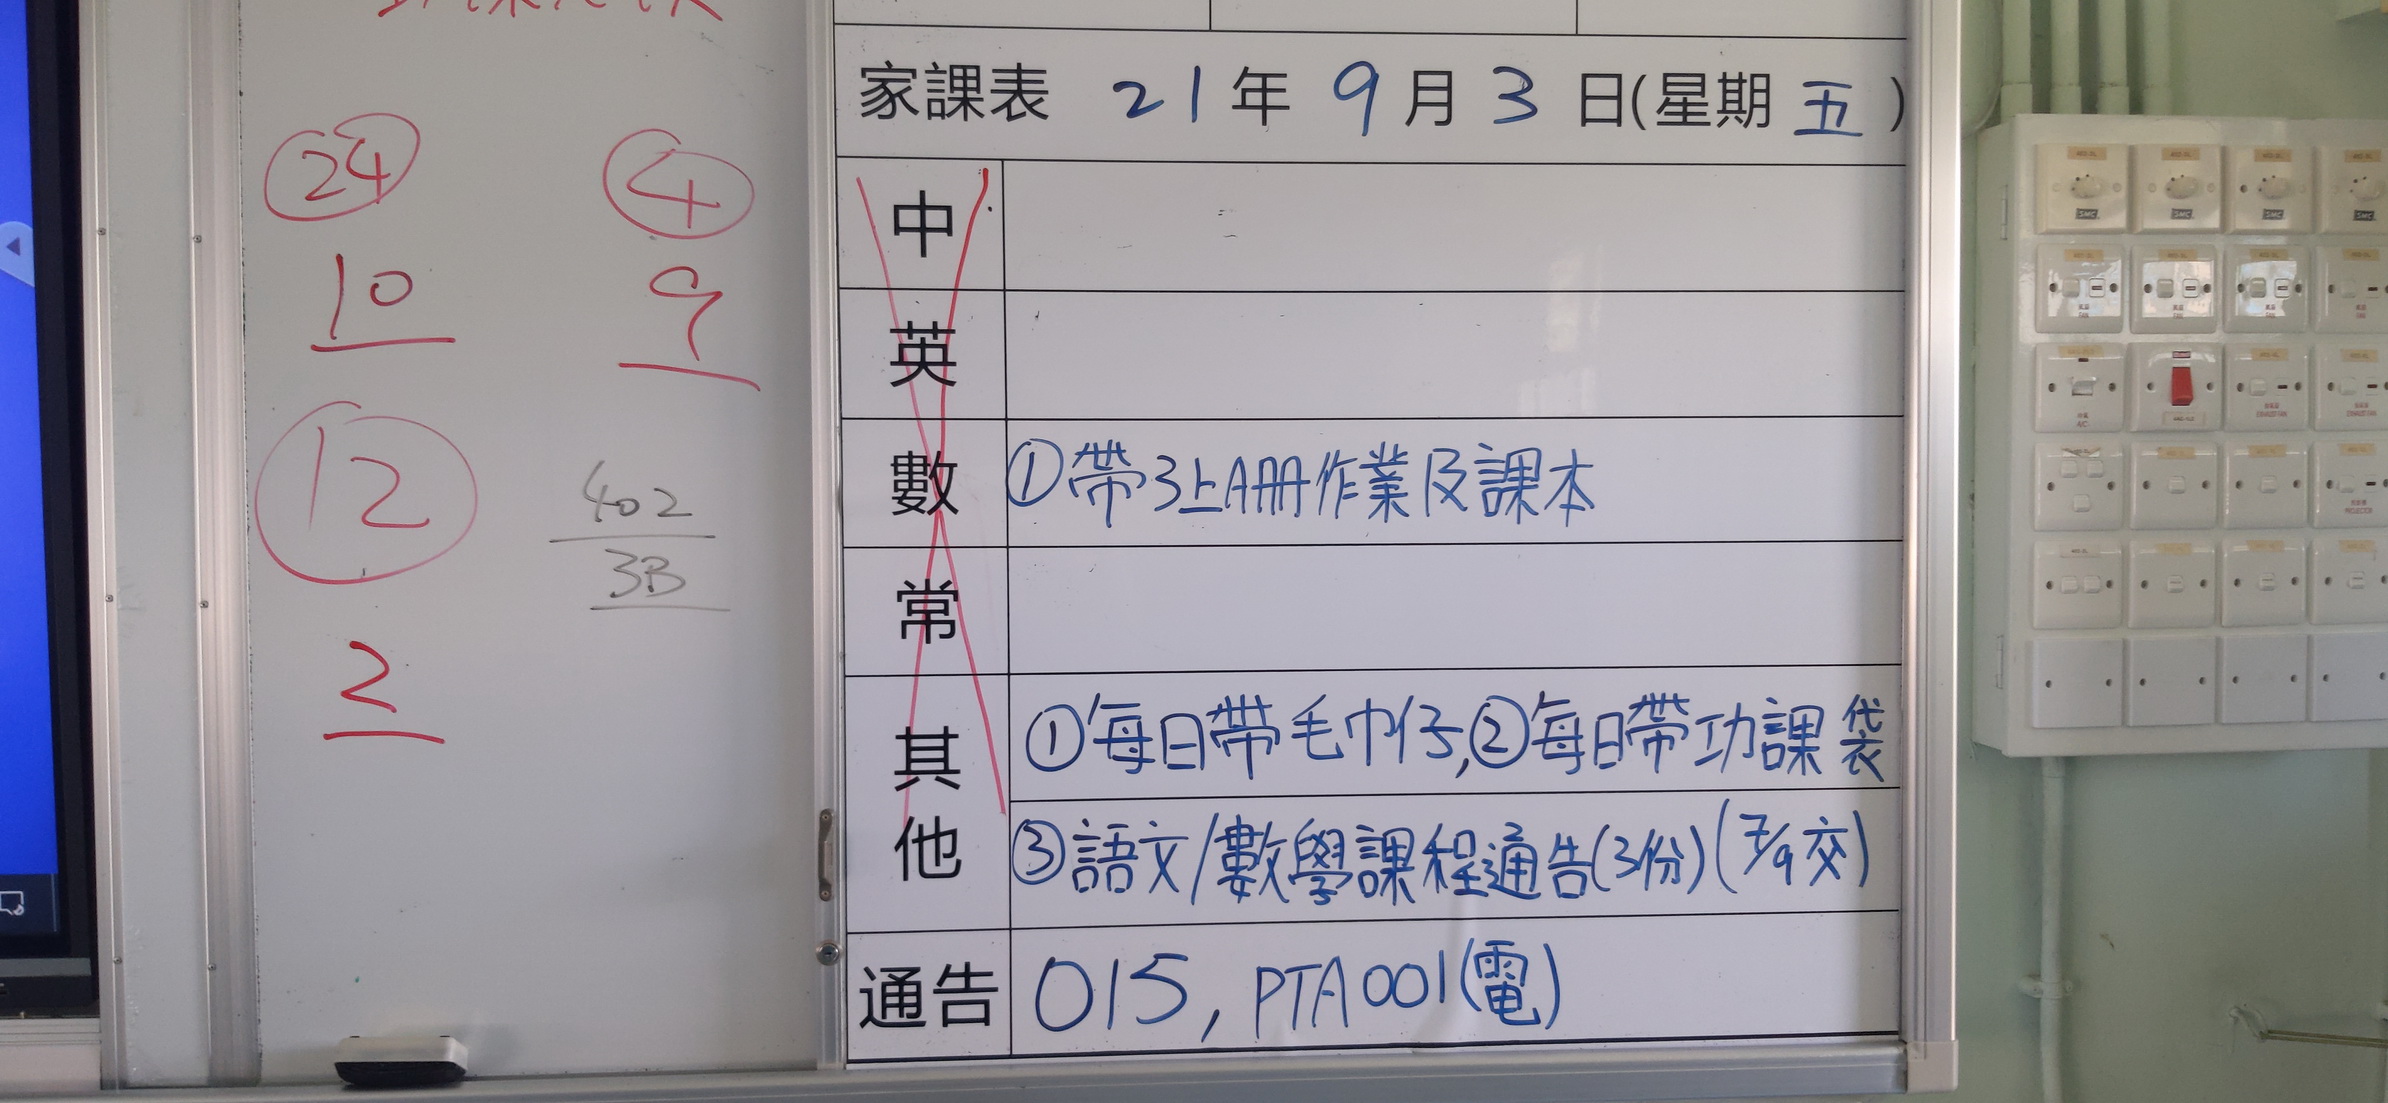 24
4
10
9
12
402
3B
2
家課表 21年9月3日(星期五)
中
英
數 ①帶3上A冊作業及課本
常
其他 ①每日帶毛巾仔,②每日帶功課袋
③語文/數學課程通告(3份)(7/9交)
通告 015, PTA001(電)
SMC SMC SMC SMC
FAN FAN FAN
A/C
EXHAUST FAN
PROJECTOR